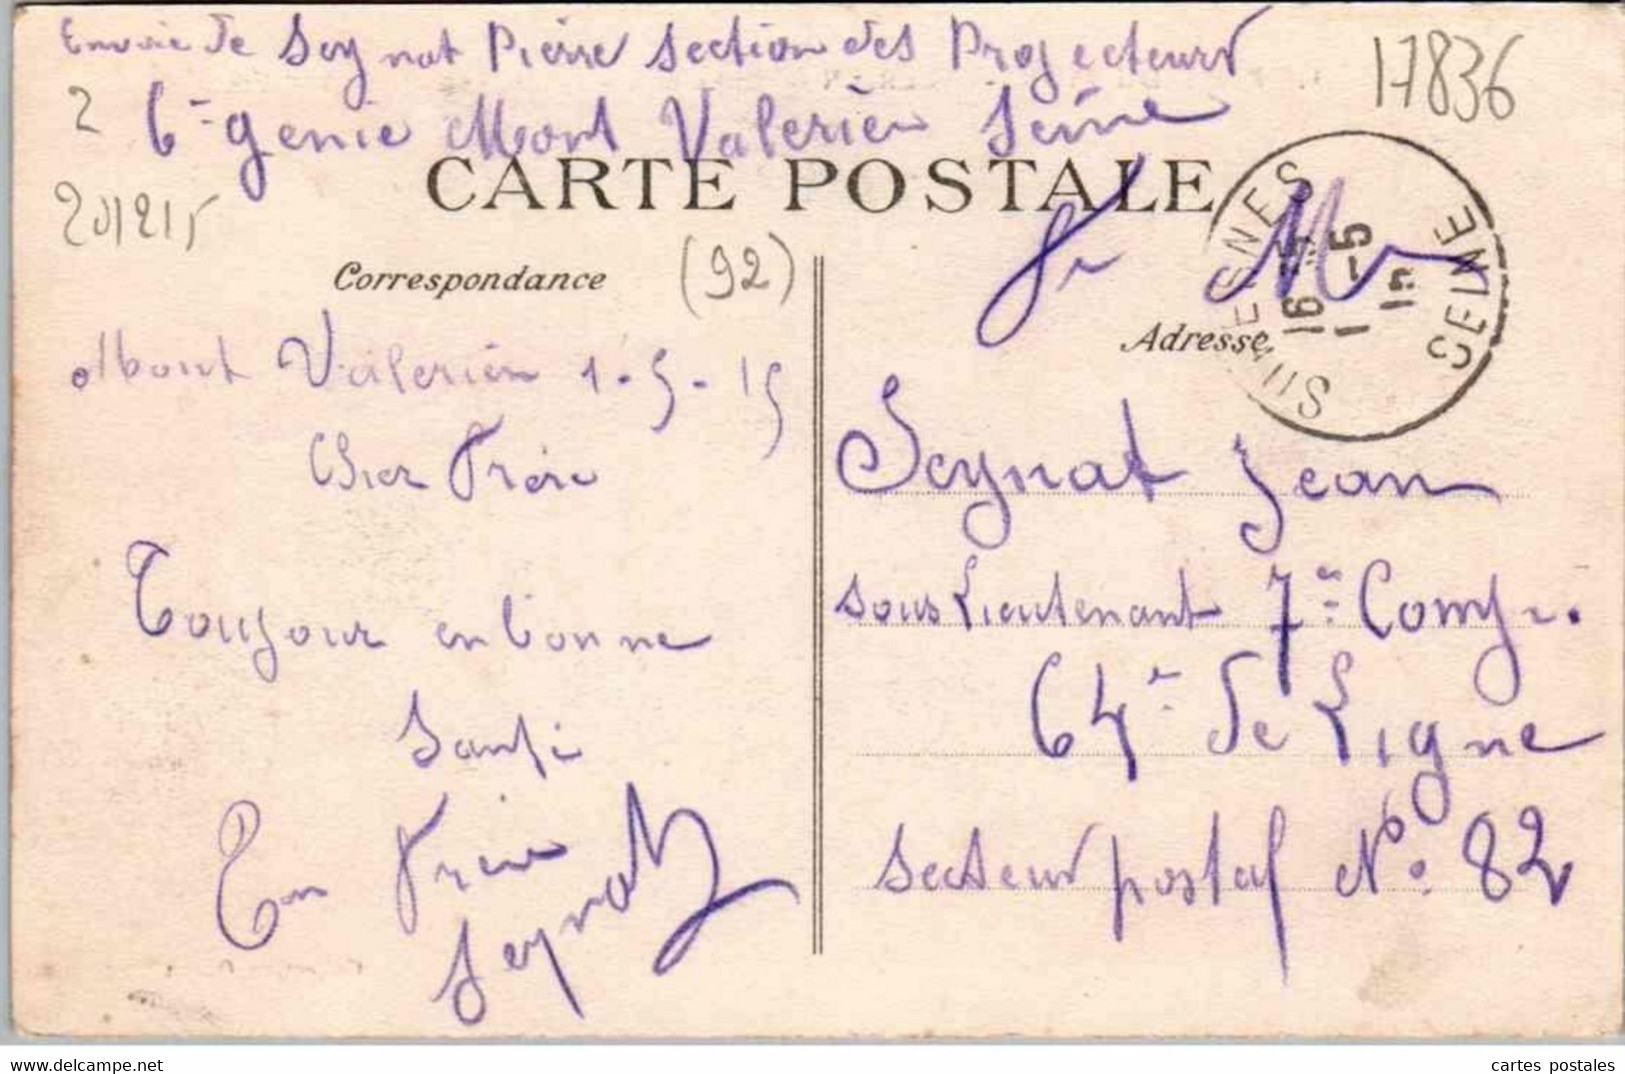 Envoie de Seynat Pierre Section des Projecteurs
6e genie Mont Valerien Seine
17836
2
201215
CARTE POSTALE
(92)
Correspondance
Mont Valerien 1-5-15
Cher Frère
Toujour en bonne
Santé
Ton Frère
Seynat
SURESNES SEINE
16
1-5
15
Mr
Adresse
Seynat Jean
sous Lieutenant 7e Comp.
64e de Ligne
secteur postal No 82
delcampe.net
cartes postales